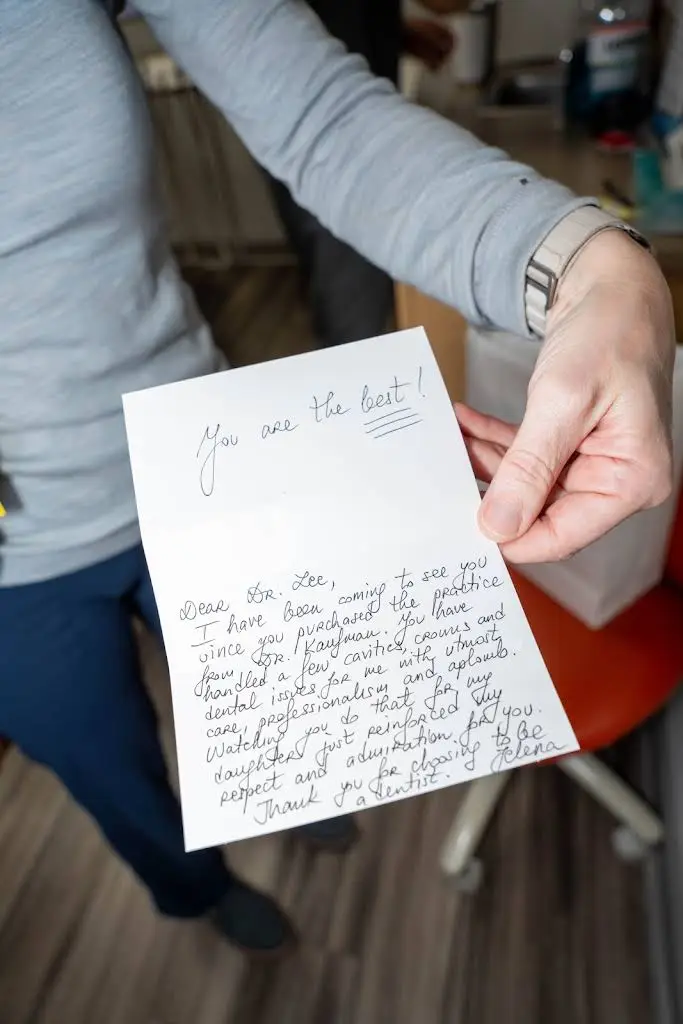 You are the best!
Dear Dr. Lee,
I have been coming to see you
since you purchased the practice
from Dr. Kaufman. You have
handled a few cavities, crowns and
dental issues for me with utmost
care, professionalism and aplomb.
Watching you do that for my
daughters just reinforced my
respect and admiration for you.
Thank you for choosing to be
a dentist. Jelena